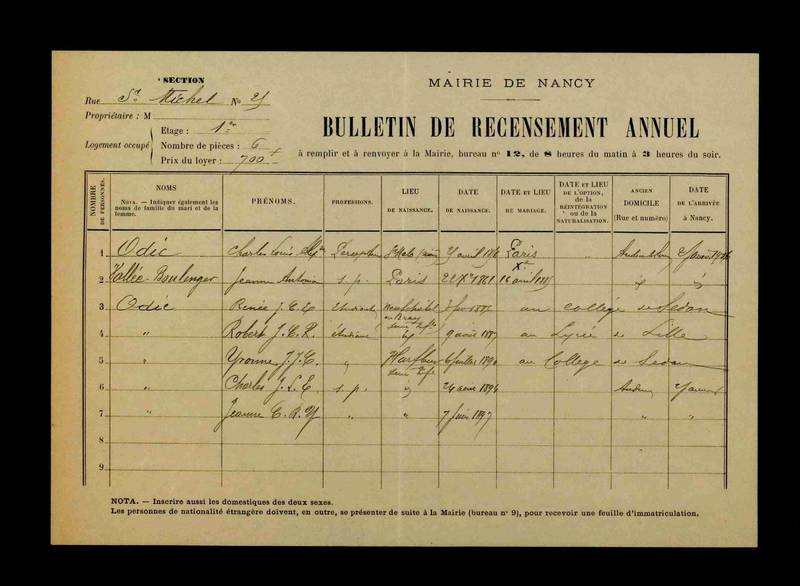 SECTION
Rue St Michel No
Propriétaire : M
Logement occupé
Etage : 1er
Nombre de pièces : 6
Prix du loyer : 700
MAIRIE DE NANCY
BULLETIN DE RECENSEMENT ANNUEL
à remplir et à renvoyer à la Mairie, bureau n° 12, de 8 heures du matin à 3 heures du soir.
NOMBRE DE PERSONNES.
NOMS
NOTA. — Indiquer également les noms de famille du mari et de la femme.
PRÉNOMS.
PROFESSIONS.
LIEU DE NAISSANCE.
DATE DE NAISSANCE.
DATE ET LIEU DE MARIAGE.
DATE ET LIEU DE L'OPTION, de la RÉINTÉGRATION ou de la NATURALISATION.
ANCIEN DOMICILE (Rue et numéro)
DATE DE L'ARRIVÉE à Nancy.
1 Odic Charles Louis Percepteur avril Paris
2 Vallée-Boulenger Jeanne s. p. Paris 1861 16 avril
3 Odic Renée J. C. E. au collège de Sedan
4 " Robert J. C. R. étudiant 9 août 1887 au Lycée de Lille
5 " Yvonne J. J. C. " Harfleur 6 juillet 1890 au College de Sedan
6 " Charles J. L. E. s. p. 24 août
7 " Jeanne " " 7 juin 1897 " "
8
9
NOTA. — Inscrire aussi les domestiques des deux sexes.
Les personnes de nationalité étrangère doivent, en outre, se présenter de suite à la Mairie (bureau n° 9), pour recevoir une feuille d'immatriculation.